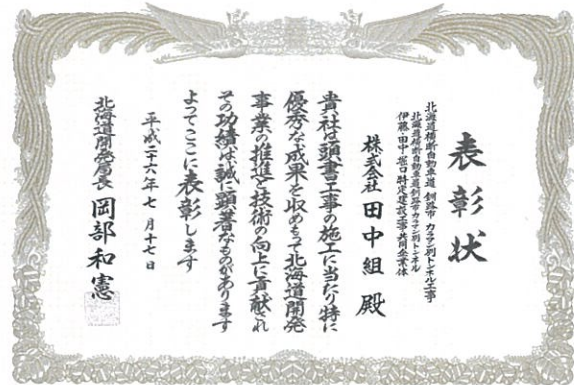 表彰状
北海道横断自動車道 釧路市 カラマン別トンネル工事
北海道横断自動車道釧路市カラマン別トンネル
伊藤・田中・堀口特定建設工事共同企業体
株式会社 田中組 殿
貴社は頭書工事の施工に当たり特に
優秀な成果を収めもって北海道開発
事業の推進と技術の向上に貢献され
その功績は誠に顕著なものがあります
よってここに表彰します
平成二十六年七月十七日
北海道開発局長 岡部和憲